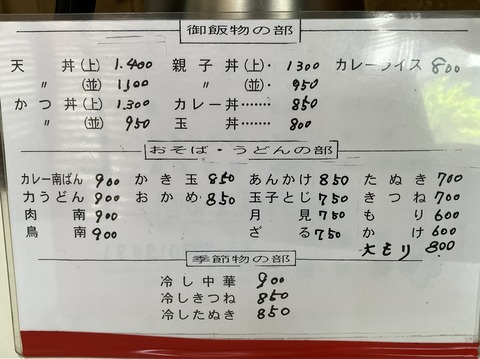 御飯物の部
天丼(上) 1.400 親子丼(上)・ 1300 カレーライス 800
〃 (並) 1,100 〃 (並)・ 950
かつ丼(上) 1.300 カレー丼…… 850
〃 (並) 950 玉丼…… 800
おそば・うどんの部
カレー南ばん 900 かき玉 850 あんかけ 850 たぬき 700
力うどん 900 おかめ 850 玉子とじ 750 きつね 700
肉南 900 月見 750 もり 600
鳥南 900 ざる 750 かけ 600
大モリ 800
季節物の部
冷し中華 900
冷しきつね 850
冷したぬき 850